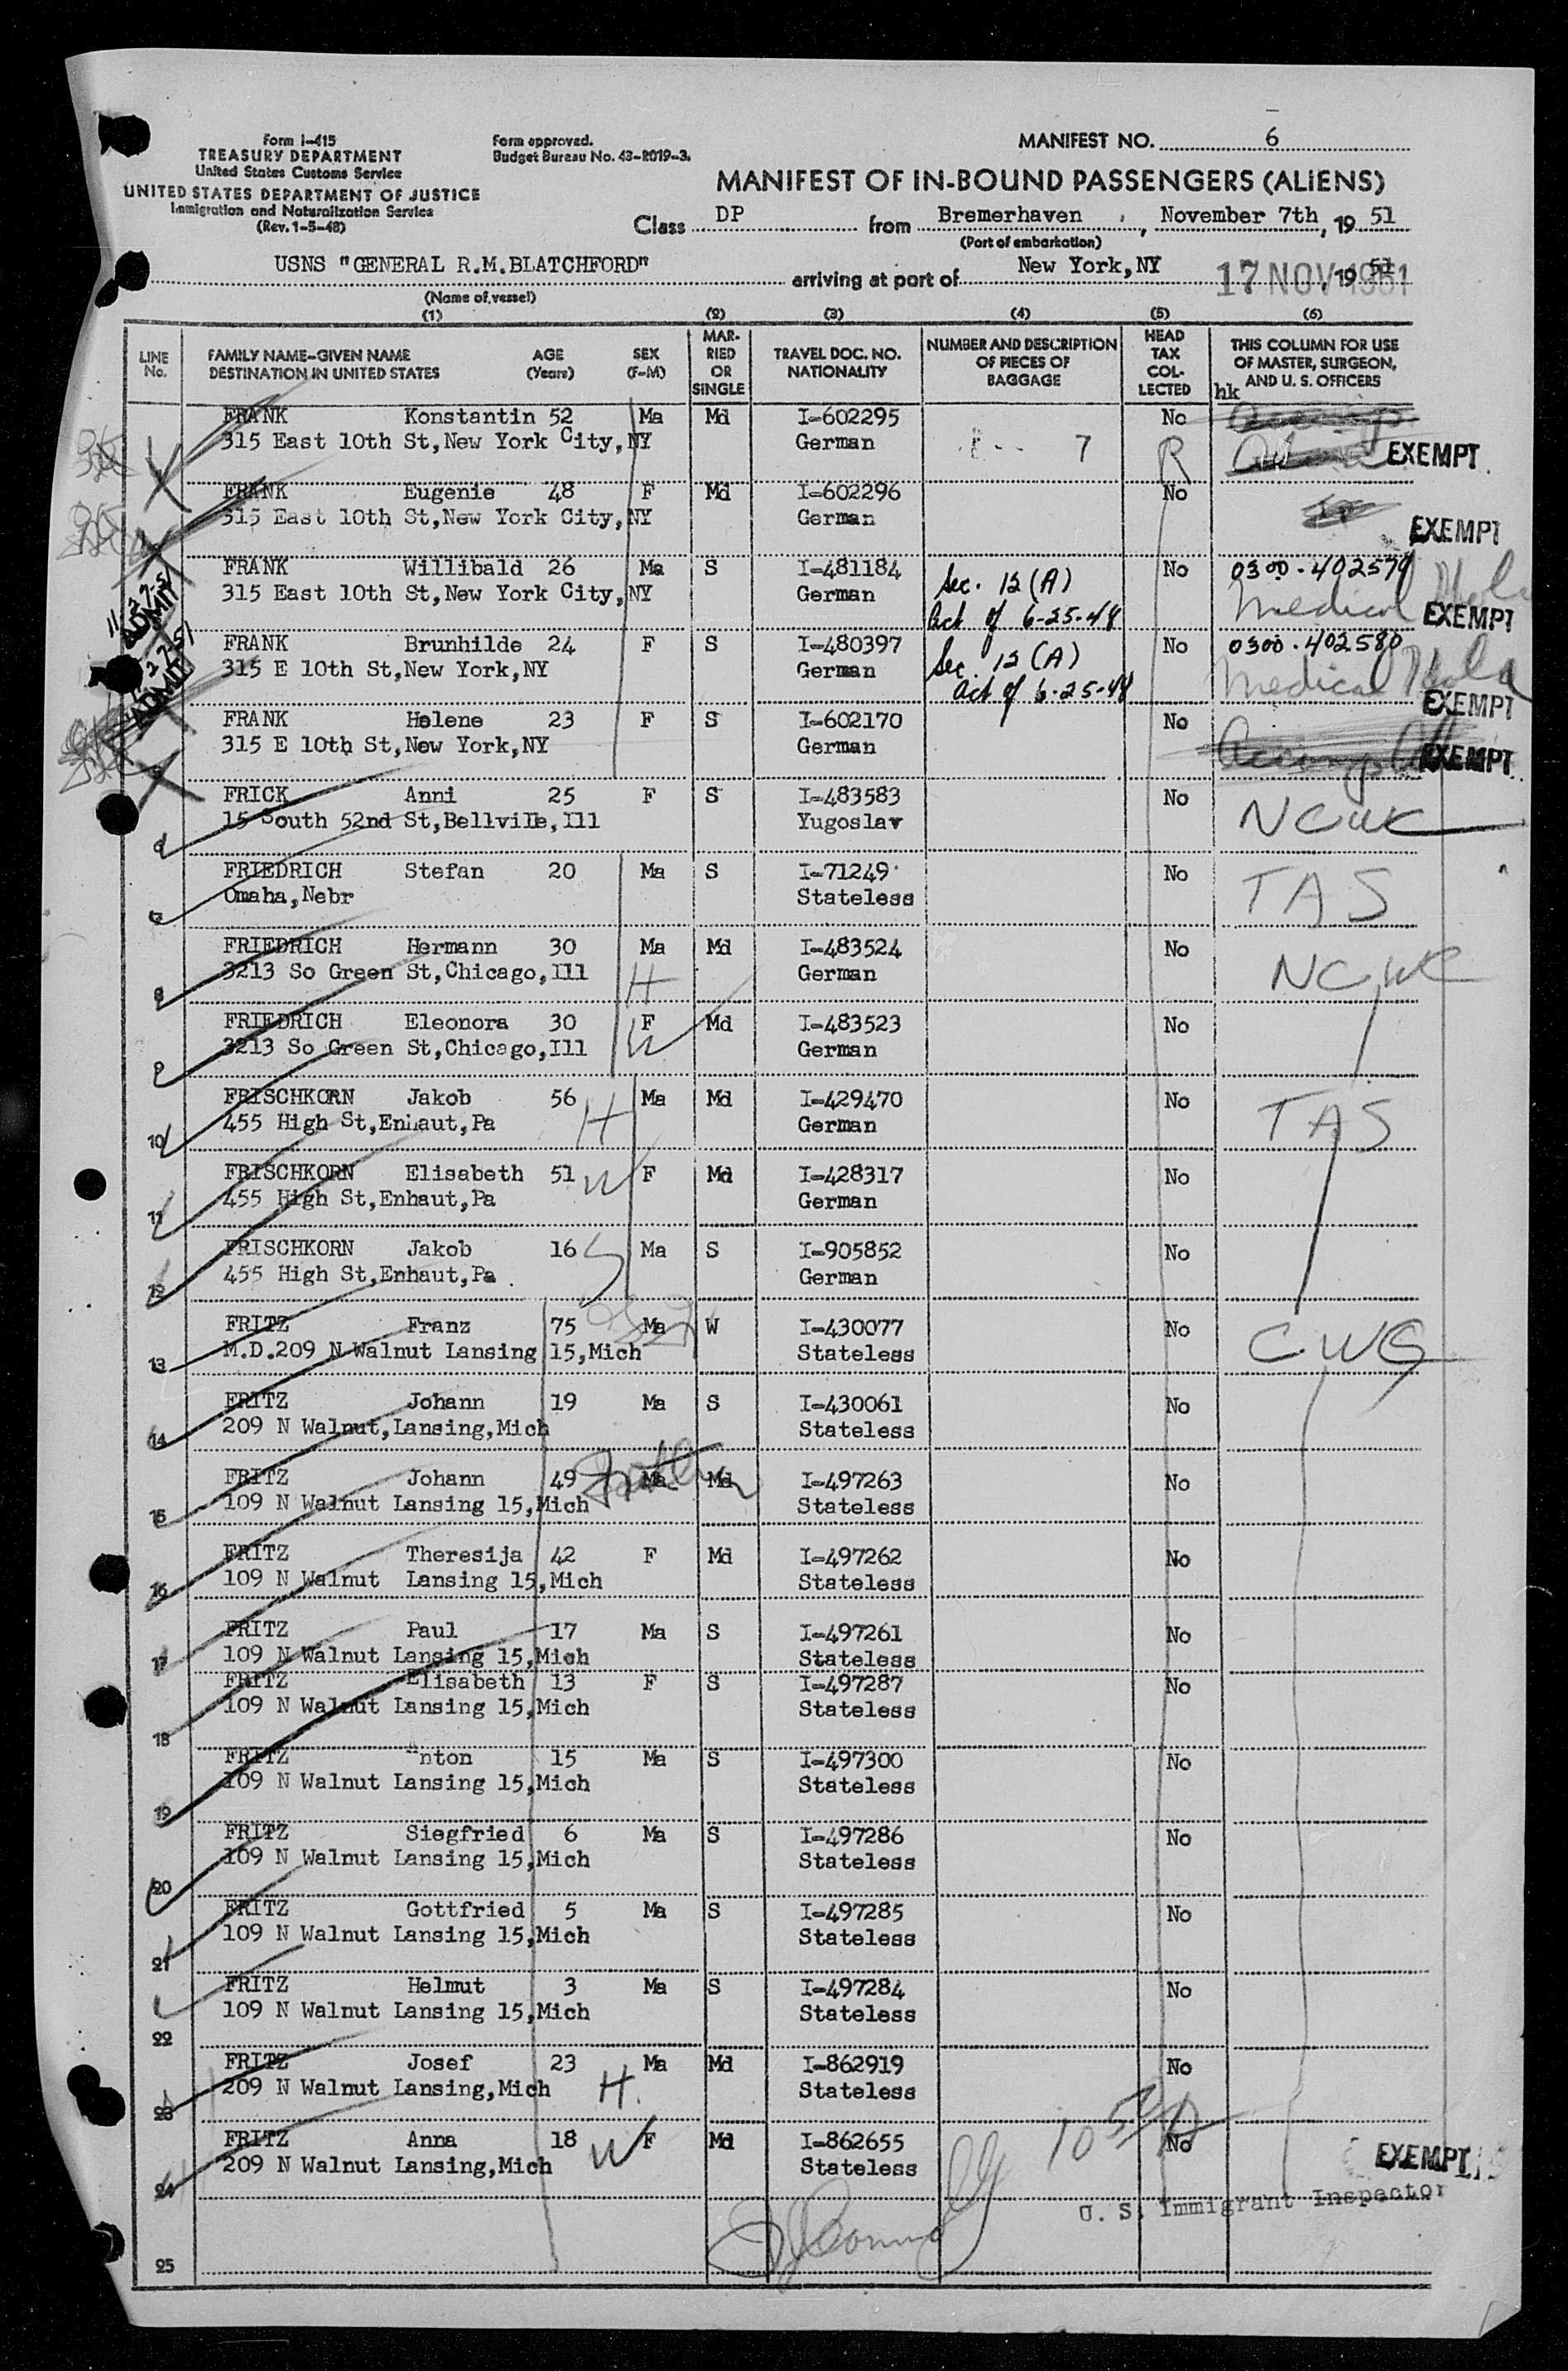 Form I-415
TREASURY DEPARTMENT
United States Customs Service
UNITED STATES DEPARTMENT OF JUSTICE
Immigration and Naturalization Service
(Rev. 1-5-48)
Form approved.
Budget Bureau No. 43-R019-3.
MANIFEST NO. 6
MANIFEST OF IN-BOUND PASSENGERS (ALIENS)
Class DP from Bremerhaven, November 7th, 1951
(Port of embarkation)
USNS "GENERAL R.M.BLATCHFORD" arriving at port of New York,NY 17 NOV 1951, 19 51
(Name of vessel)
(1) (2) (3) (4) (5) (6)
LINE No. FAMILY NAME-GIVEN NAME DESTINATION IN UNITED STATES AGE (Years) SEX (F-M) MARRIED OR SINGLE TRAVEL DOC. NO. NATIONALITY NUMBER AND DESCRIPTION OF PIECES OF BAGGAGE HEAD TAX COLLECTED THIS COLUMN FOR USE OF MASTER, SURGEON, AND U. S. OFFICERS
hk
FRANK Konstantin 52 Ma Md I-602295 No
315 East 10th St,New York City,NY German 7 R EXEMPT
FRANK Eugenie 48 F Md I-602296 No
315 East 10th St,New York City,NY German EXEMPT
FRANK Willibald 26 Ma S I-481184 Sec. 12 (A) No 0300-402579
315 East 10th St,New York City,NY German Act of 6-25-48 Medical Hold EXEMPT
ADMIT
FRANK Brunhilde 24 F S I-480397 Sec. 12 (A) No 0300-402580
315 E 10th St,New York,NY German Act of 6-25-48 Medical Hold EXEMPT
ADMIT
FRANK Helene 23 F S I-602170 No
315 E 10th St,New York,NY German EXEMPT
FRICK Anni 25 F S I-483583 No NCWC
15 South 52nd St,Bellville,Ill Yugoslav
FRIEDRICH Stefan 20 Ma S I-71249 No TAS
Omaha,Nebr Stateless
FRIEDRICH Hermann 30 Ma Md I-483524 No NCWC
8 3213 So Green St,Chicago,Ill H German
FRIEDRICH Eleonora 30 F Md I-483523 No
9 3213 So Green St,Chicago,Ill W German
FRISCHKORN Jakob 56 H Ma Md I-429470 No TAS
10 455 High St,Enhaut,Pa German
FRISCHKORN Elisabeth 51 W F Md I-428317 No
11 455 High St,Enhaut,Pa German
FRISCHKORN Jakob 16 S Ma S I-905852 No
12 455 High St,Enhaut,Pa German
FRITZ Franz 75 Ma W I-430077 No CWS
13 M.D.209 N Walnut Lansing 15,Mich Stateless
FRITZ Johann 19 Ma S I-430061 No
14 209 N Walnut,Lansing,Mich Stateless
FRITZ Johann 49 Ma Md I-497263 No
15 109 N Walnut Lansing 15,Mich Stateless
FRITZ Theresija 42 F Md I-497262 No
16 109 N Walnut Lansing 15,Mich Stateless
FRITZ Paul 17 Ma S I-497261 No
17 109 N Walnut Lansing 15,Mich Stateless
FRITZ Elisabeth 13 F S I-497287 No
18 109 N Walnut Lansing 15,Mich Stateless
FRITZ Anton 15 Ma S I-497300 No
19 109 N Walnut Lansing 15,Mich Stateless
FRITZ Siegfried 6 Ma S I-497286 No
20 109 N Walnut Lansing 15,Mich Stateless
FRITZ Gottfried 5 Ma S I-497285 No
21 109 N Walnut Lansing 15,Mich Stateless
FRITZ Helmut 3 Ma S I-497284 No
22 109 N Walnut Lansing 15,Mich Stateless
FRITZ Josef 23 Ma Md I-862919 No
23 209 N Walnut Lansing,Mich H. Stateless
FRITZ Anna 18 F Md I-862655 No
24 209 N Walnut Lansing,Mich W Stateless EXEMPT
U. S. Immigrant Inspector
25